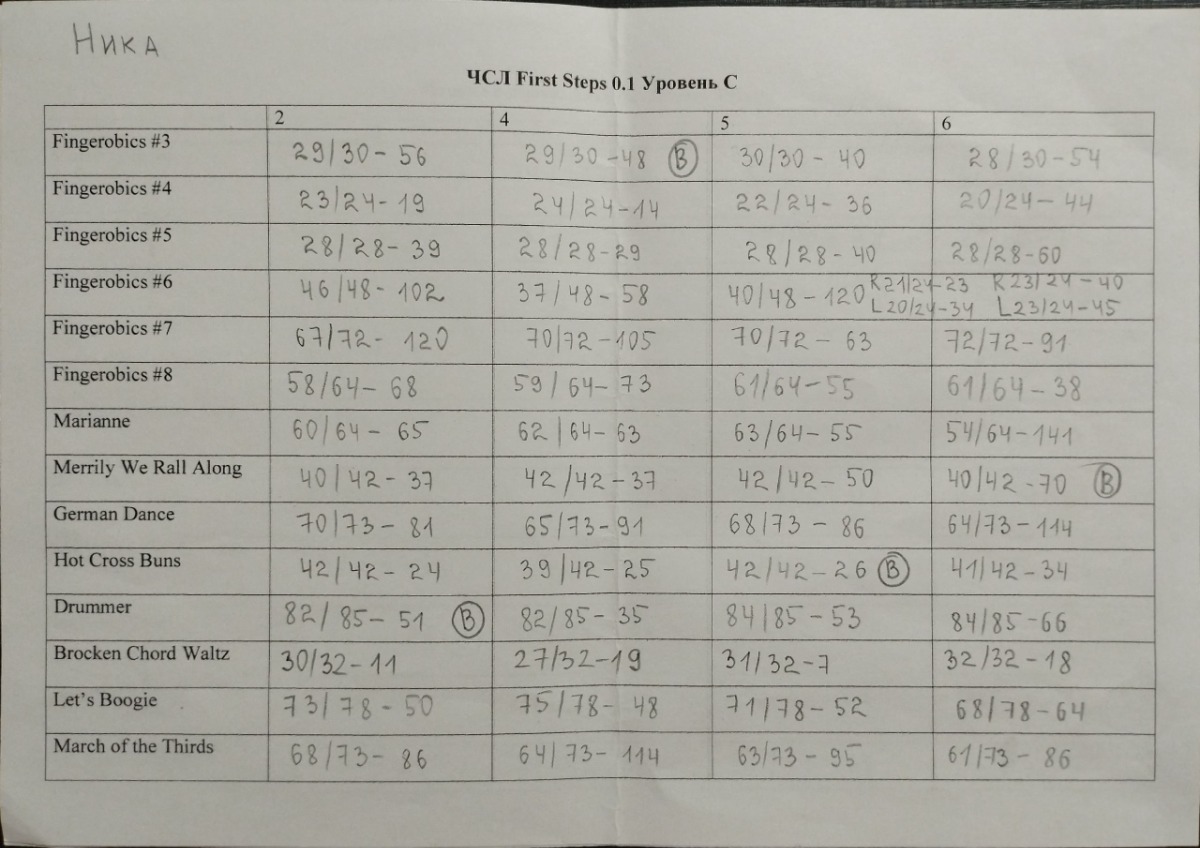 Ника
ЧСЛ First Steps 0.1 Уровень С
2 4 5 6
Fingerobics #3 29/30 - 56 29/30 - 48 B 30/30 - 40 28/30 - 54
Fingerobics #4 23/24 - 19 24/24 - 14 22/24 - 36 20/24 - 44
Fingerobics #5 28/28 - 39 28/28 - 29 28/28 - 40 28/28 - 60
Fingerobics #6 46/48 - 102 37/48 - 58 40/48 - 120 R21/24 - 23 R23/24 - 40
L20/24 - 34 L23/24 - 45
Fingerobics #7 67/72 - 120 70/72 - 105 70/72 - 63 72/72 - 91
Fingerobics #8 58/64 - 68 59/64 - 73 61/64 - 55 61/64 - 38
Marianne 60/64 - 65 62/64 - 63 63/64 - 55 54/64 - 141
Merrily We Rall Along 40/42 - 37 42/42 - 37 42/42 - 50 40/42 - 70 B
German Dance 70/73 - 81 65/73 - 91 68/73 - 86 64/73 - 114
Hot Cross Buns 42/42 - 24 39/42 - 25 42/42 - 26 B 41/42 - 34
Drummer 82/85 - 51 B 82/85 - 35 84/85 - 53 84/85 - 66
Brocken Chord Waltz 30/32 - 11 27/32 - 19 31/32 - 7 32/32 - 18
Let's Boogie 73/78 - 50 75/78 - 48 71/78 - 52 68/78 - 64
March of the Thirds 68/73 - 86 64/73 - 114 63/73 - 95 61/73 - 86